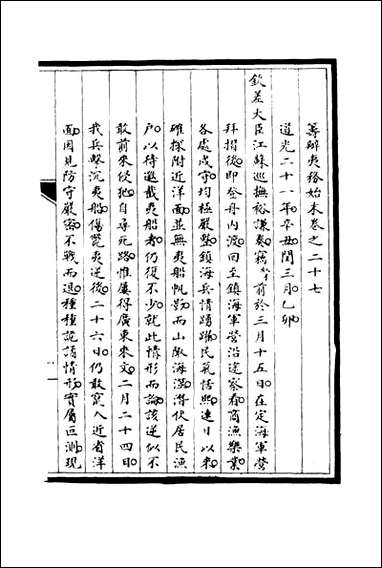 籌辦夷務始末卷之二十七
道光二十一年辛丑閏三月乙卯
欽差大臣江蘇巡撫裕謙奏竊奴才前於三月十五日在定海軍營
拜摺後即登舟內渡回至鎮海軍營沿途察看商漁樂業
各處戍守均極嚴整鎮海兵情踴躍民氣恬熙連日以來
確探附近洋面並無夷船帆影而山陬海澨潛伏居民漁
戶以待邀截夷船者仍復不少就此情形而論該逆似不
敢前來侵犯自尋死路惟屢得廣東來文二月二十四日
我兵擊沉夷船傷斃夷逆後二十六日仍敢竄入近省洋
面因見防守嚴密不戰而退種種詭譎情形實屬叵測現